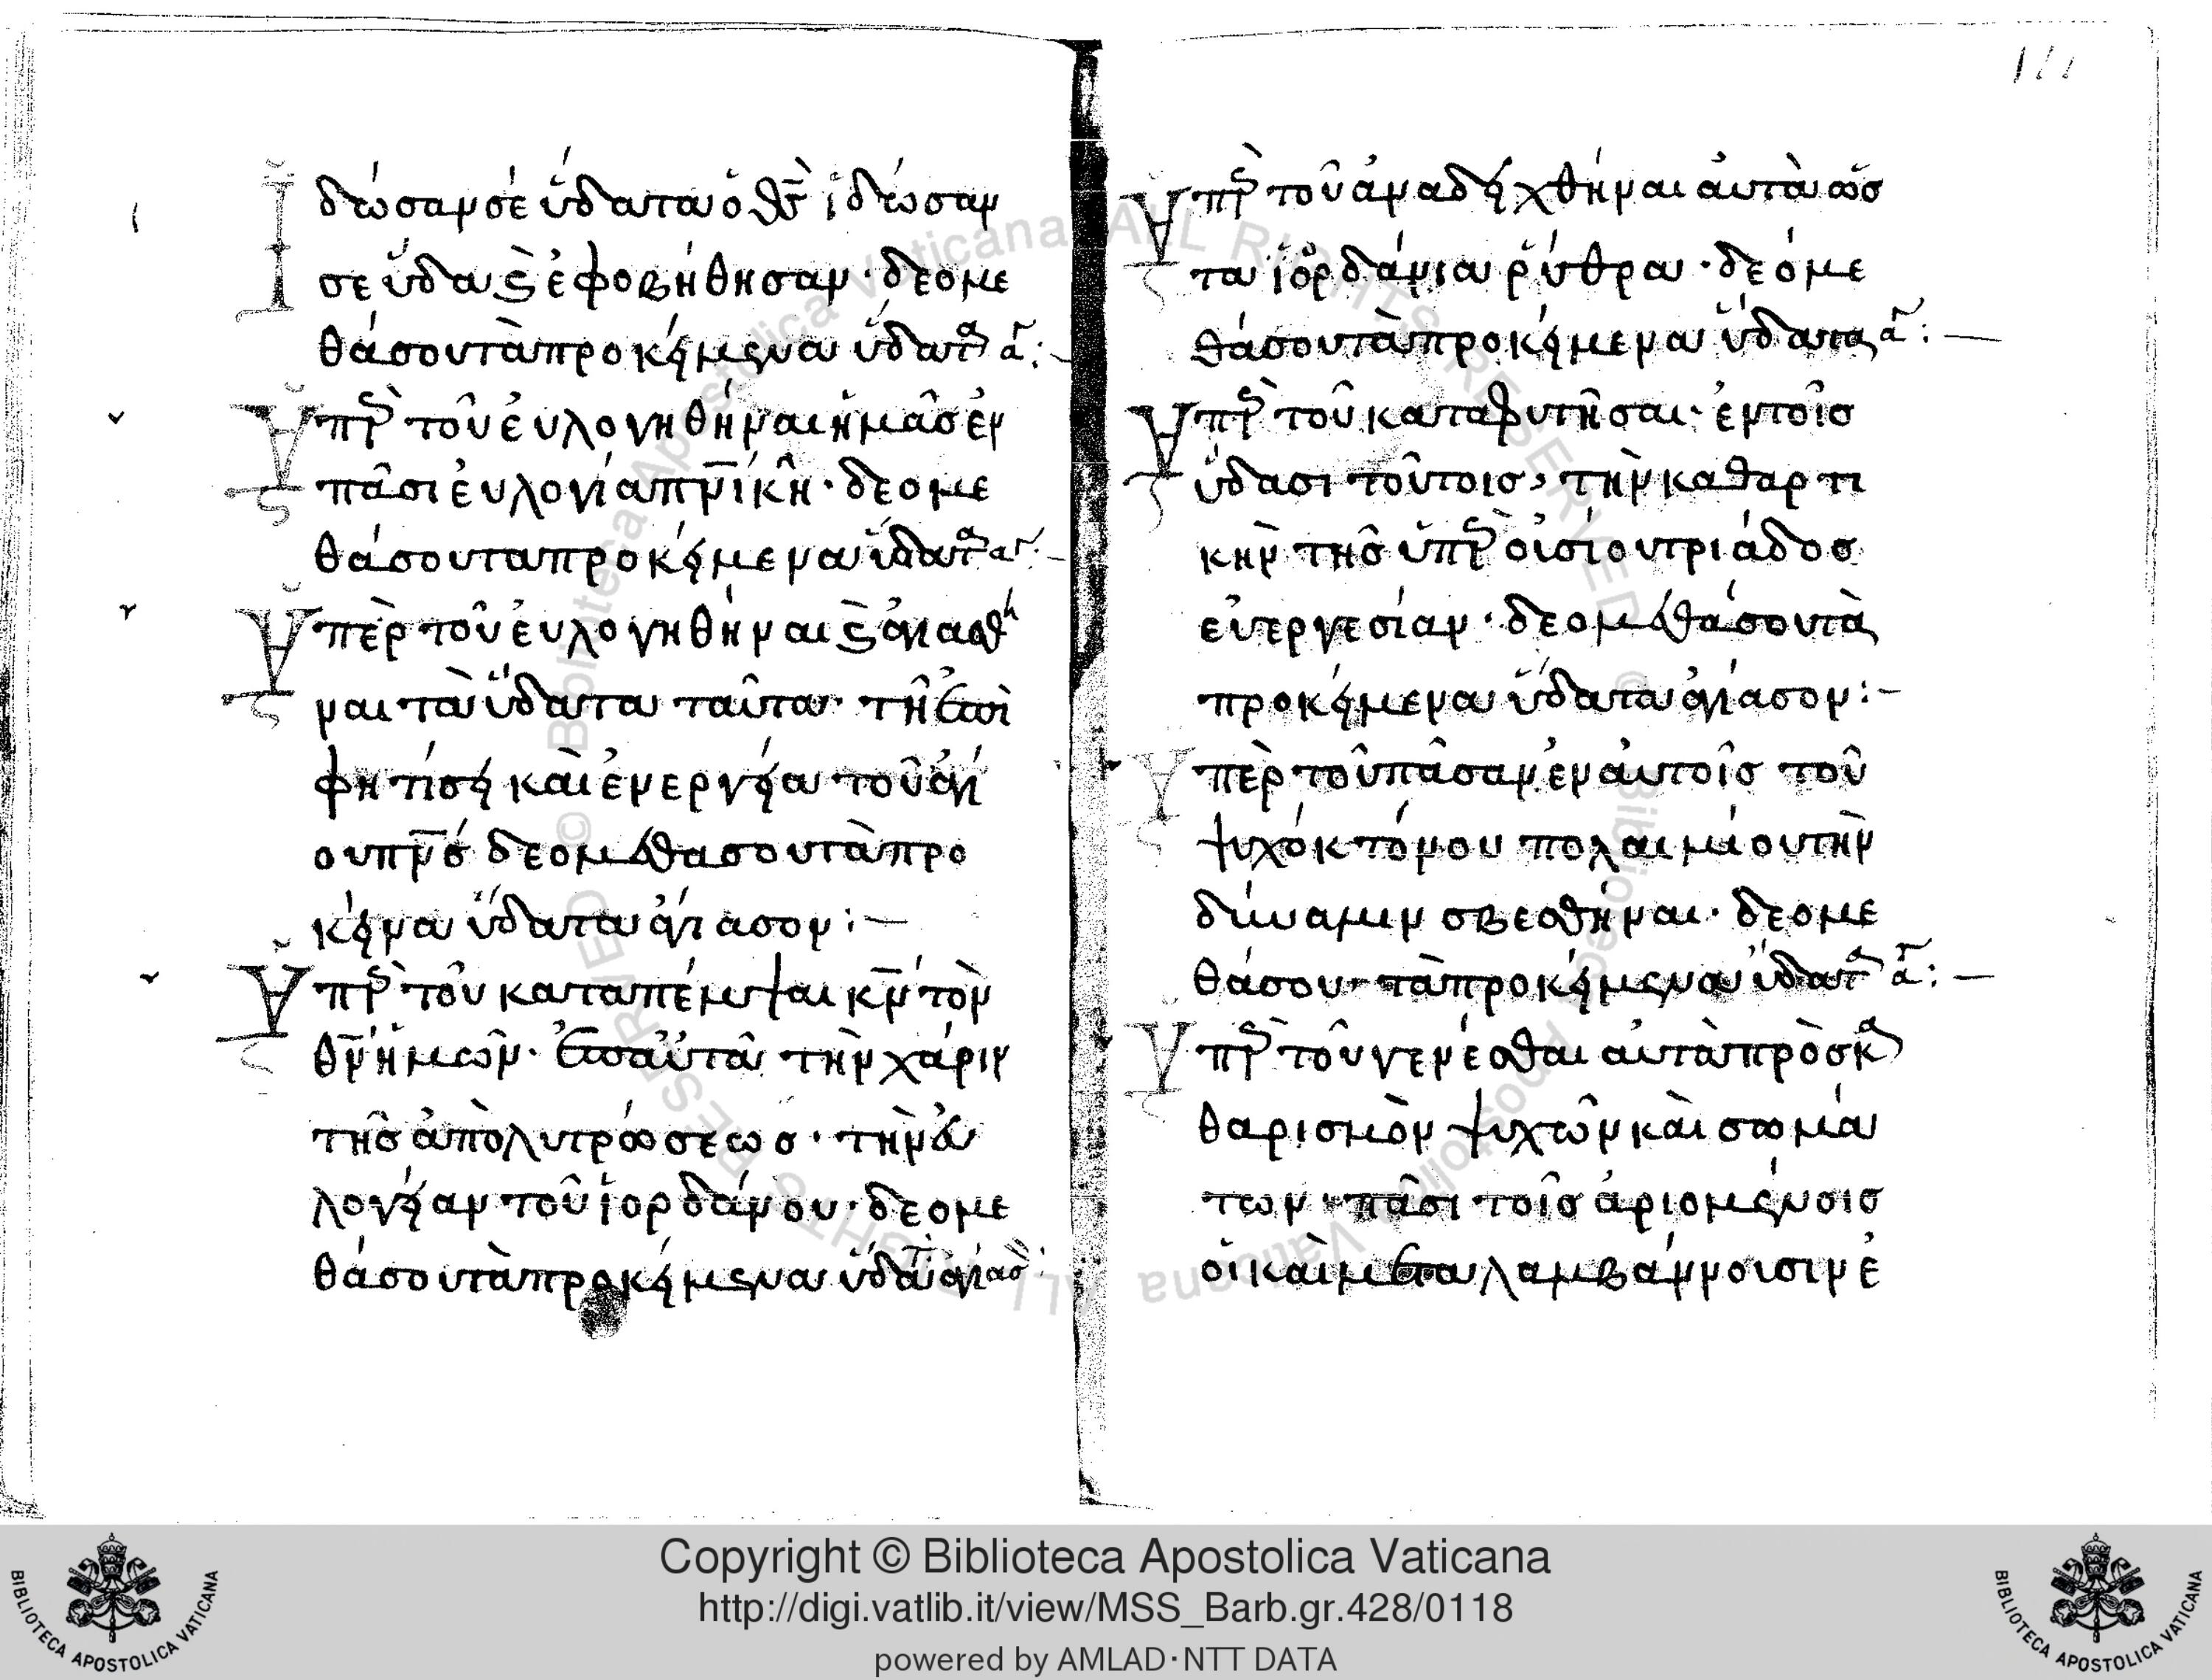 111
Ἴδωσαν σέ ὕδατα ὁ θς̅ ἴδωσαν
σε ὕδα ϗ ἐφοβήθησαν· δεομε
θά σου τὰ προκείμενα ὕδατα ἁγ:
Ὑπὲρ τοῦ ἐυλογηθῆναι ἡμᾶς ἐν
πᾶσι ἐυλογία πν̅ικῆ· δεομε
θά σου τα προκείμενα ὕδατα αγ:
Ὑπὲρ τοῦ ἐυλογηθῆναι ϗ ἁγιασθῆ
ναι τὰ ὕδατα ταῦτα· τῆ ἐπὶ
φητίσει καὶ ἐνεργεία τοῦ ἁγί
ου πν̅ς δεομεθα σου τὰ προ
κείμνα ὕδατα ἁγιασον:
Ὑπὲρ τοῦ καταπέμψαι κν̅ τὸν
θν̅ ἡμῶν· ἐπ αὐτὰ τὴν χάριν
τῆς ἀπὸλυτρώσεως· τὴν ἐυ
λογείαν τοῦ ἰορδάνου· δεομε
θά σου τὰ προκείμενα ὕδατα ἁγίασ:
Ὑπὲρ τοῦ ἀναδειχθῆναι ἀυτὰ ὡς
τα ἰορδάνια ῥύθρα· δεόμε
θά σου τὰ προκείμενα ὕδατα ἁγ:
Ὑπὲρ τοῦ καταφυτῆσαι· ἐν τοῖς
ὕδασι τοῦτοις, τὴν καθαρτι
κὴν τῆς ὑπὲρ οὐσίου τριάδος
εὐεργεσίαν· δεομεθά σου τὰ
προκείμενα ὕδατα ἁγίασον:
Ὑπὲρ τοῦ πᾶσαν ἐν ἀυτοῖς τοῦ
ψυχόκτόνου πολαιμίου τὴν
δύναμιν σβεσθῆναι· δεομε
θά σου τὰ προκείμενα ὕδατα ἁγ:
Ὑπὲρ τοῦ γενέσθαι αὐτὰ πρὸς κα
θαρισμὸν ψυχῶν καὶ σωμά
των πᾶσι τοῖς ἀριομένοις
οἱ καὶ μεταλαμβάννουσιν ἐ
Copyright © Biblioteca Apostolica Vaticana
http://digi.vatlib.it/view/MSS_Barb.gr.428/0118
powered by AMLAD·NTT DATA
BIBLIOTECA APOSTOLICA VATICANA
BIBLIOTECA APOSTOLICA VATICANA